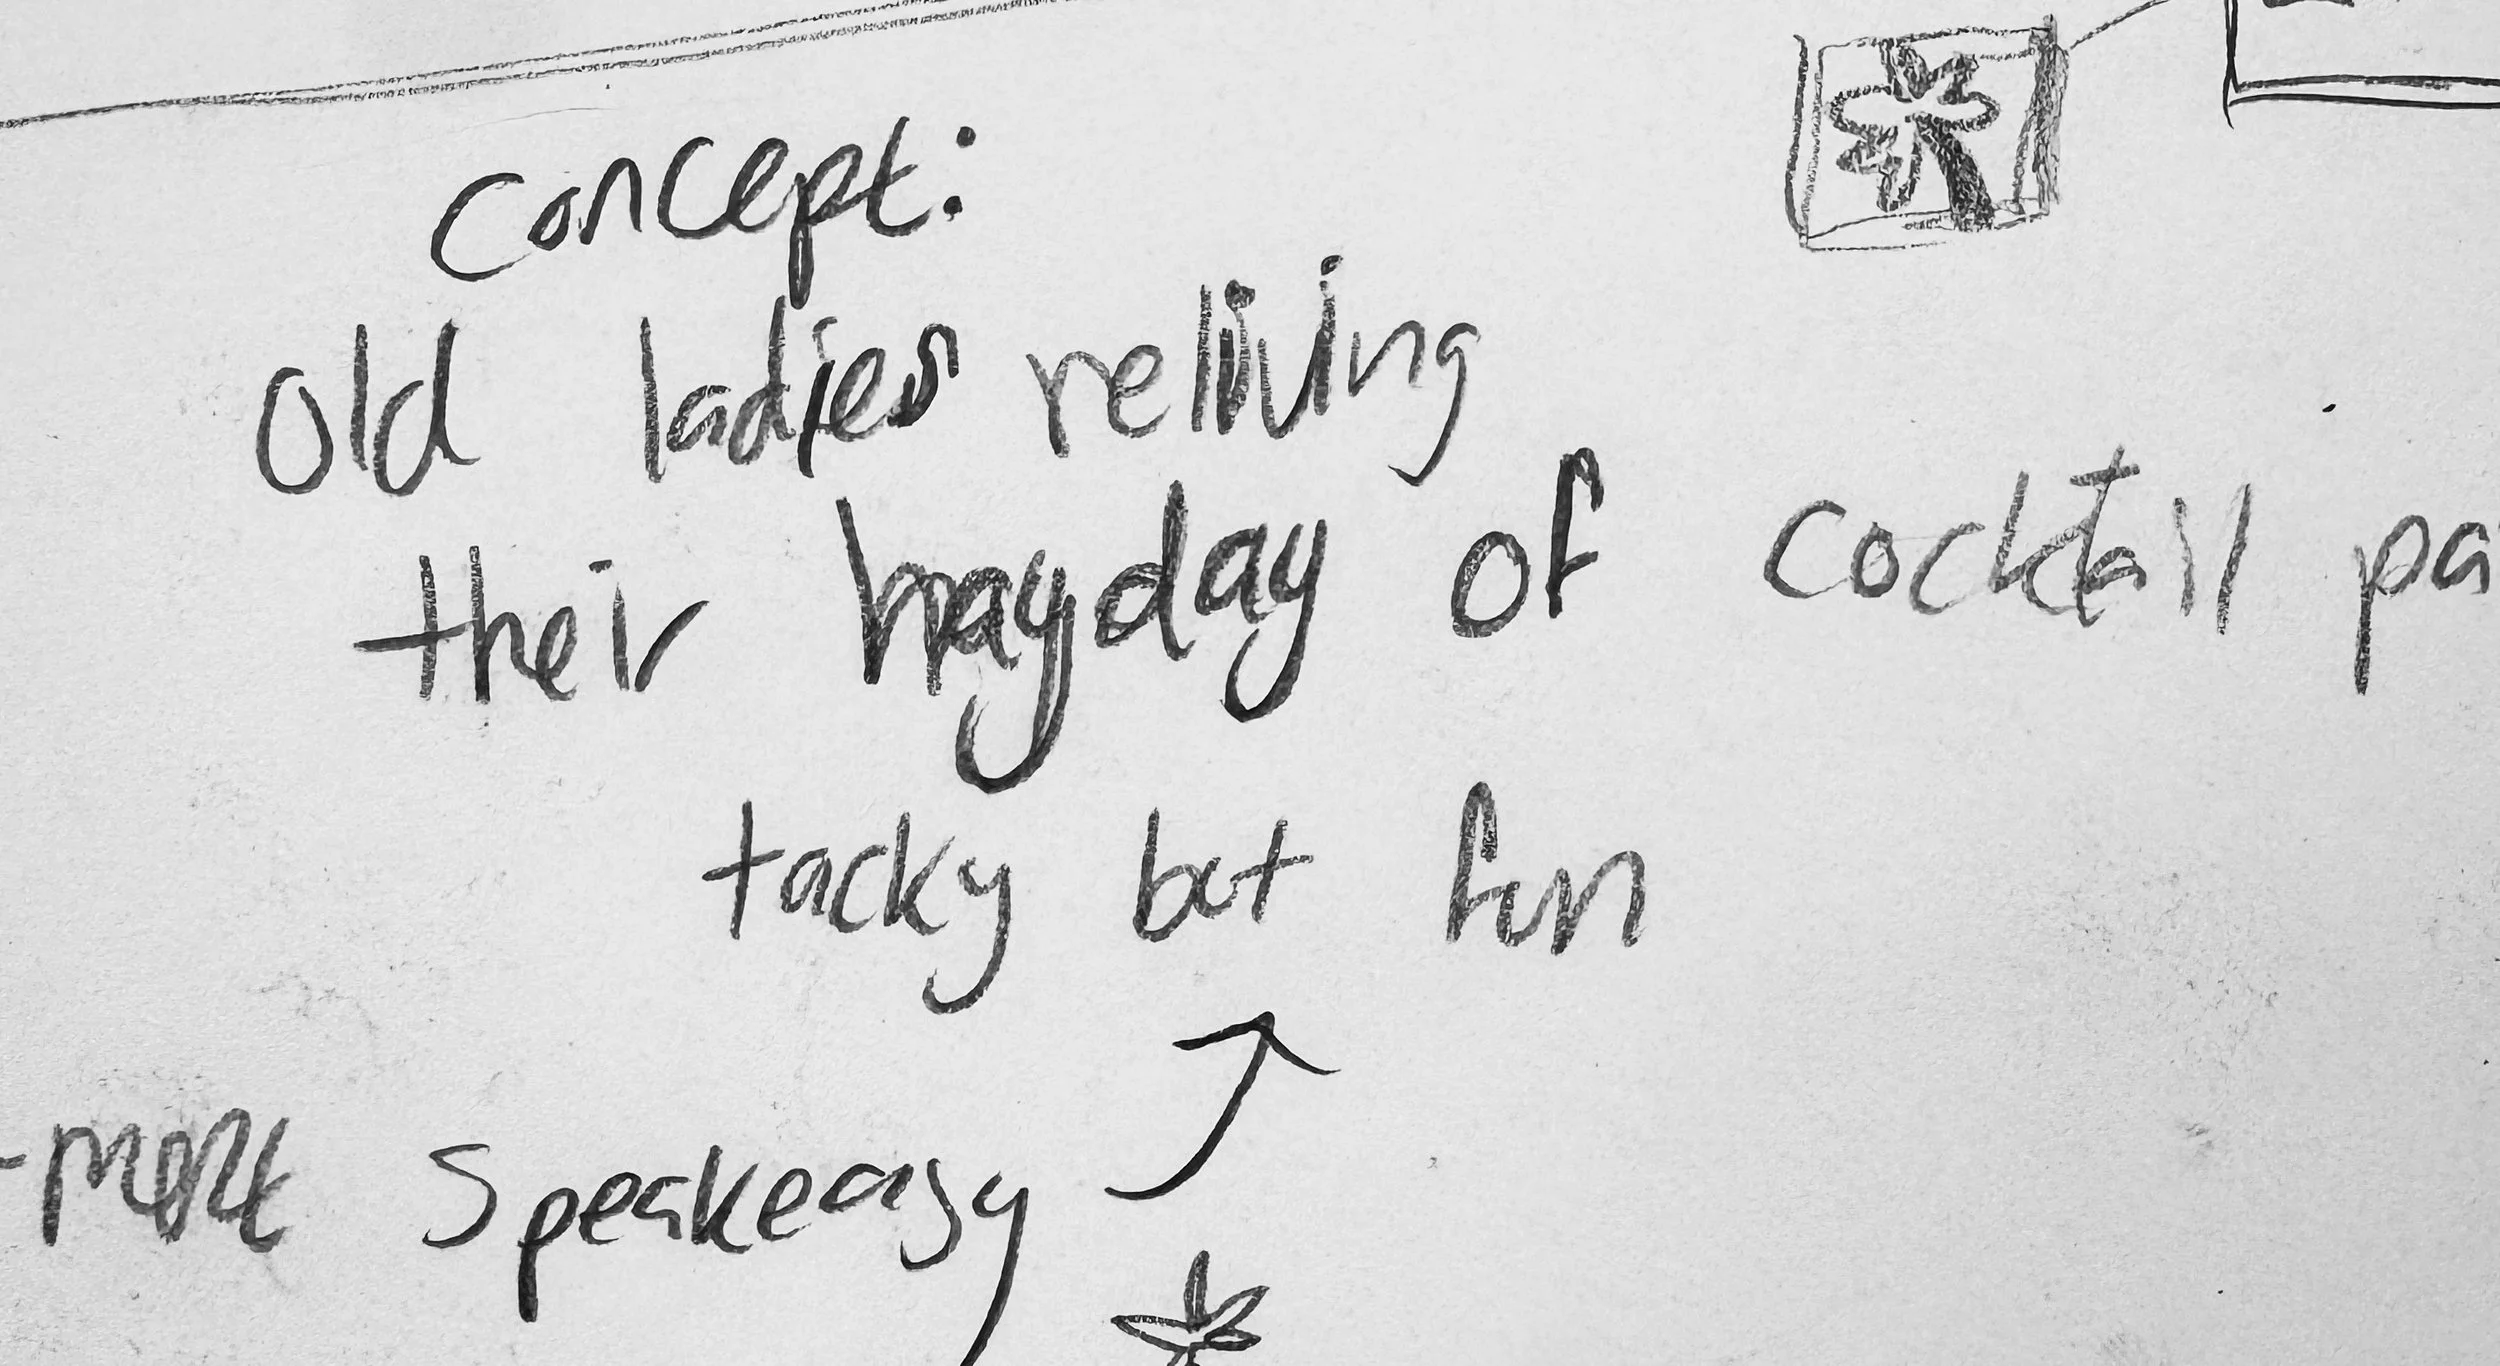 concept:
old ladies reliving
their hayday of cocktail pa
tacky but fun
-more speakeasy